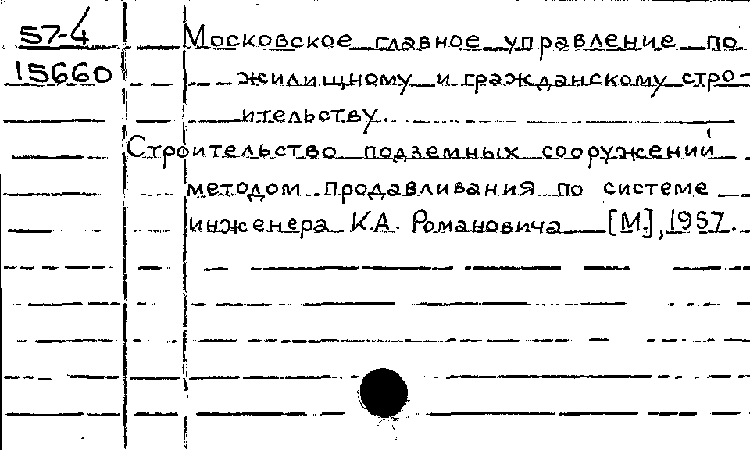 57-4 Московское главное управление по
15660 жилищному и гражданскому стро-
ительству.
Строительство подземных сооружений
методом продавливания по системе
инженера К.А. Романовича [М.], 1957.